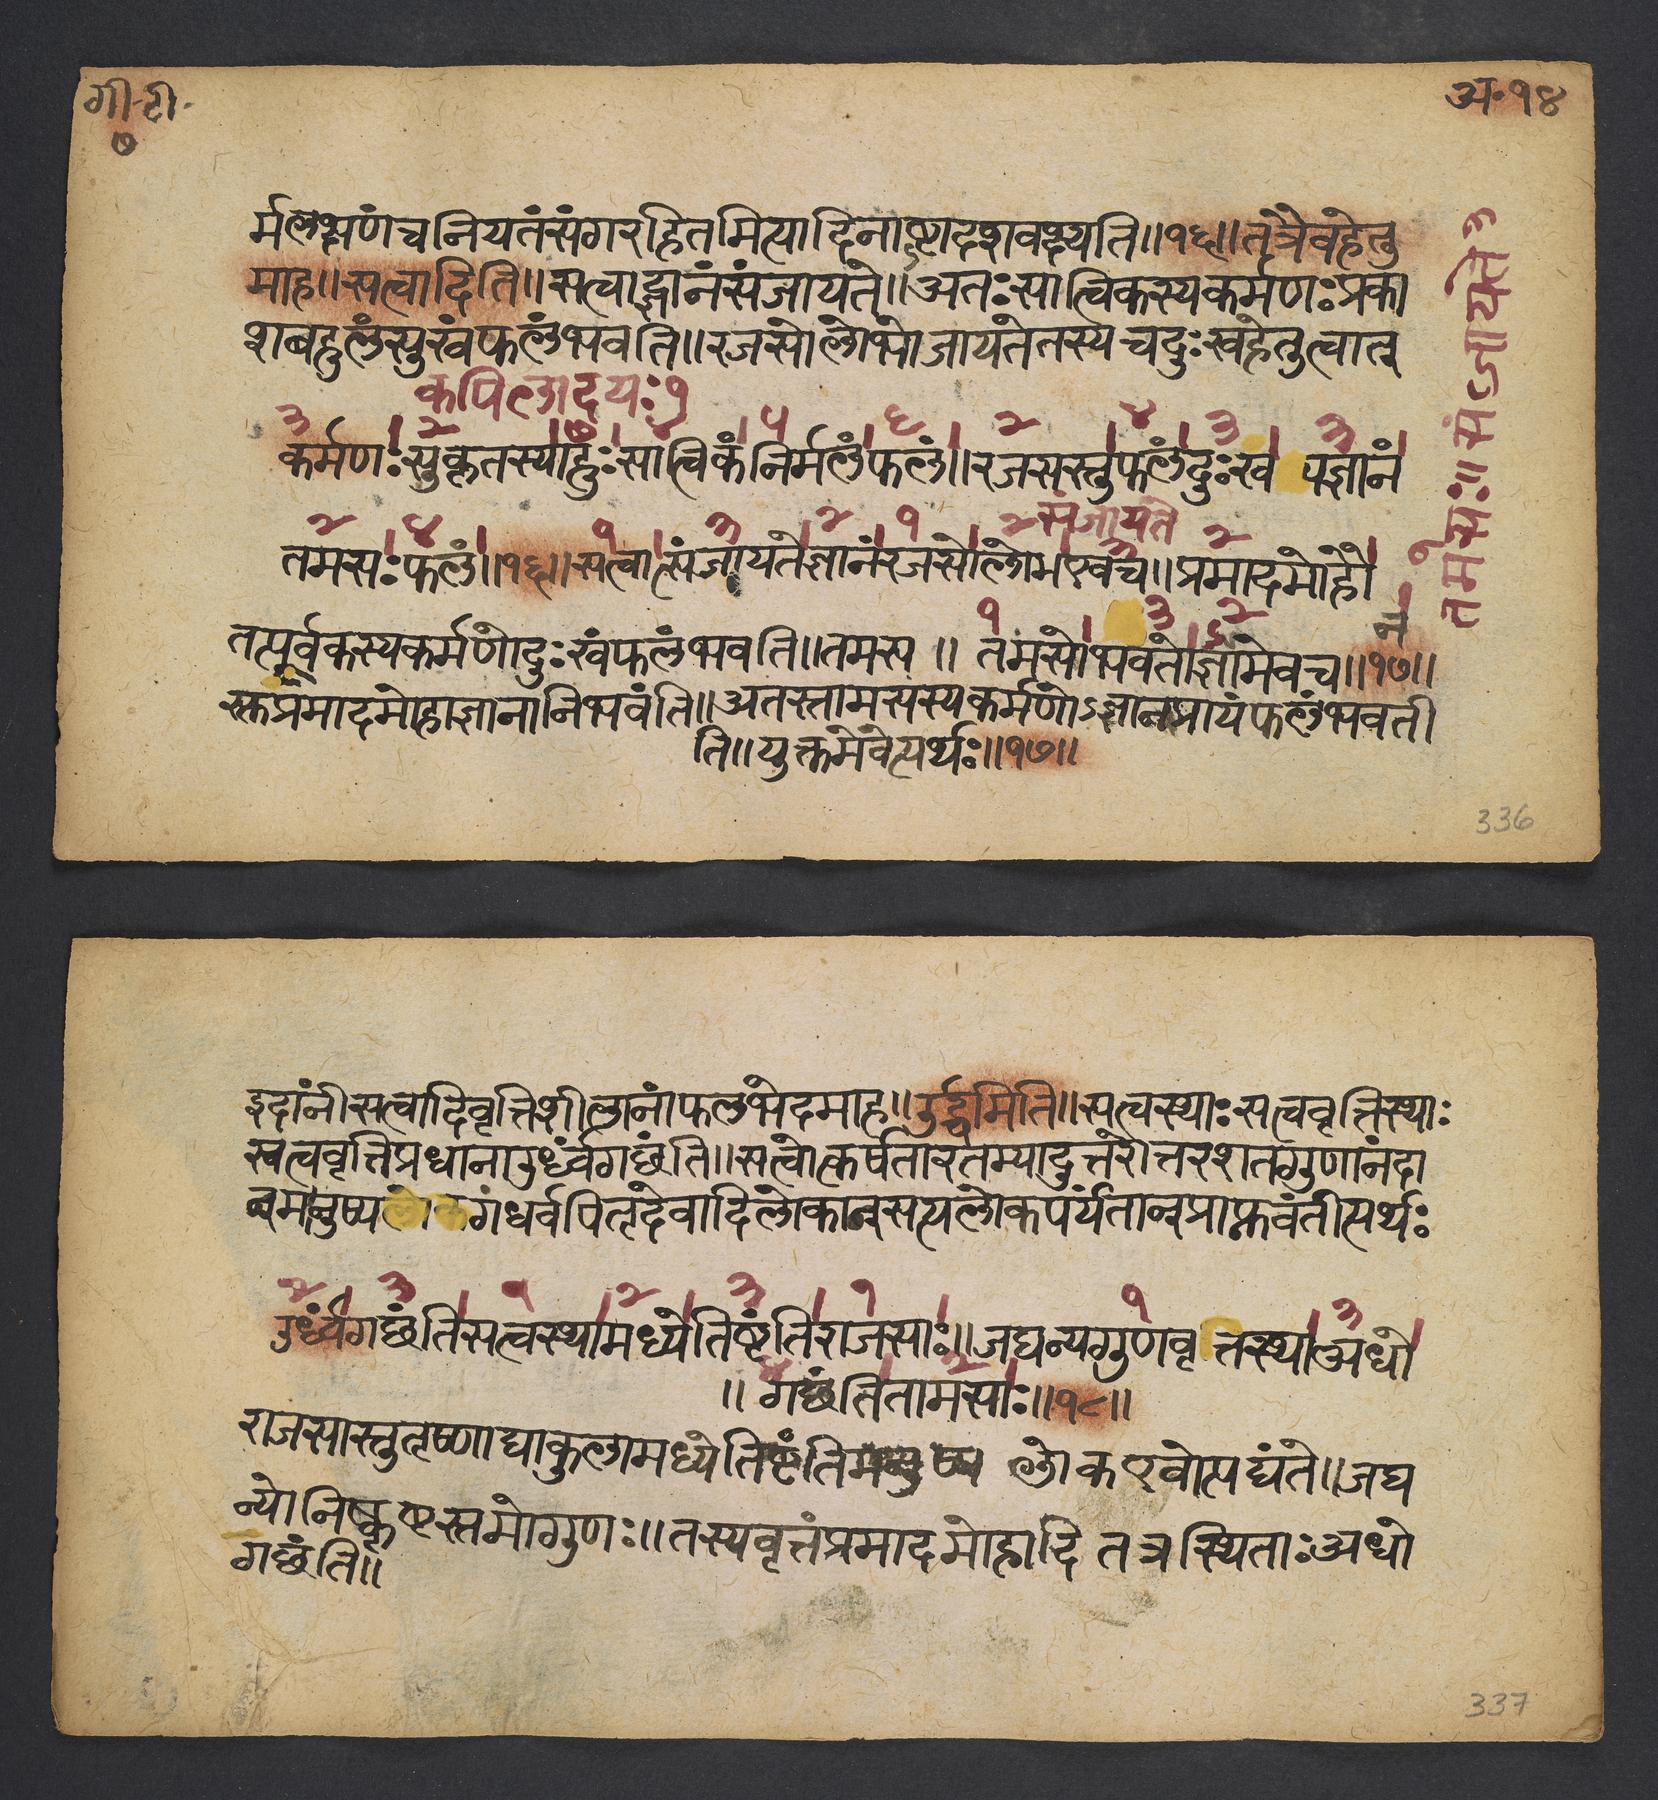 गी-टी-
७
अ॰१४
र्मलक्षणंचनियतंसंगरहितमित्यादिनाष्टादशेवक्ष्यति॥१६॥तत्रैवहेतु
माह॥सत्वादिति॥सत्वाद्ज्ञानंसंजायते॥अतःसात्विकस्यकर्मणःप्रका
शबहुलंसुखंफलंभवति॥रजसोलोभोजायतेतस्यचदुःखहेतुत्वात्
कपिलादयः१
३ २ ७ ५ ६ २ ४ ३ ३
कर्मणःसुकृतस्याहुःसात्विकंनिर्मलंफलं॥रजसस्तुफलंदुःख पज्ञानं
२ ४ १ ३ २ १ २संजायते २
तमसःफलं॥१६॥सत्वात्संजायतेज्ञानंरजसोलोभएवच॥प्रमादमोहौ
तमसः॥संजायते३
१ ३ २ न १
तत्पूर्वकस्यकर्मणोदुःखंफलंभवति॥तमस ॥ तमसोभवतोज्ञामेवच॥१७॥
स्तुप्रमादमोहाज्ञानानिभवंति॥अतस्तामसस्यकर्मणोऽज्ञानप्रायंफलंभवती
ति॥युक्तमेवेत्यर्थः॥१७॥
336
इदानींसत्वादिवृत्तिशीलानांफलभेदमाह॥उर्द्ध्वमिति॥सत्वस्थाःसत्ववृत्तिस्थाः
सत्ववृत्तिप्रधानाउर्ध्वंगछंति॥सत्वोत्कर्षतारतम्यादुत्तरोत्तरशतगुणानंदा
न्मनुष्यलोकगंधर्वपितृदेवादिलोकान्सत्यलोकपर्यंतान्प्राप्नवंतीत्यर्थः
२ ३ १ २ ३ १ १ ३
उर्ध्वंगछंतिसत्वस्थामध्येतिष्टंतिराजसाः॥जघन्यगुणवृ त्तस्थाअधो
४ २
॥ गछंतितामसाः॥१८॥
राजसास्तुतृष्णाद्याकुलामध्येतिष्टंतिमनुष्य लोकएवोत्पद्यंते॥जघ
न्योनिष्कृष्टस्तमोगुणः॥तस्यवृत्तंप्रमादमोहादि तत्रस्थिताःअधो
गछंति॥
337